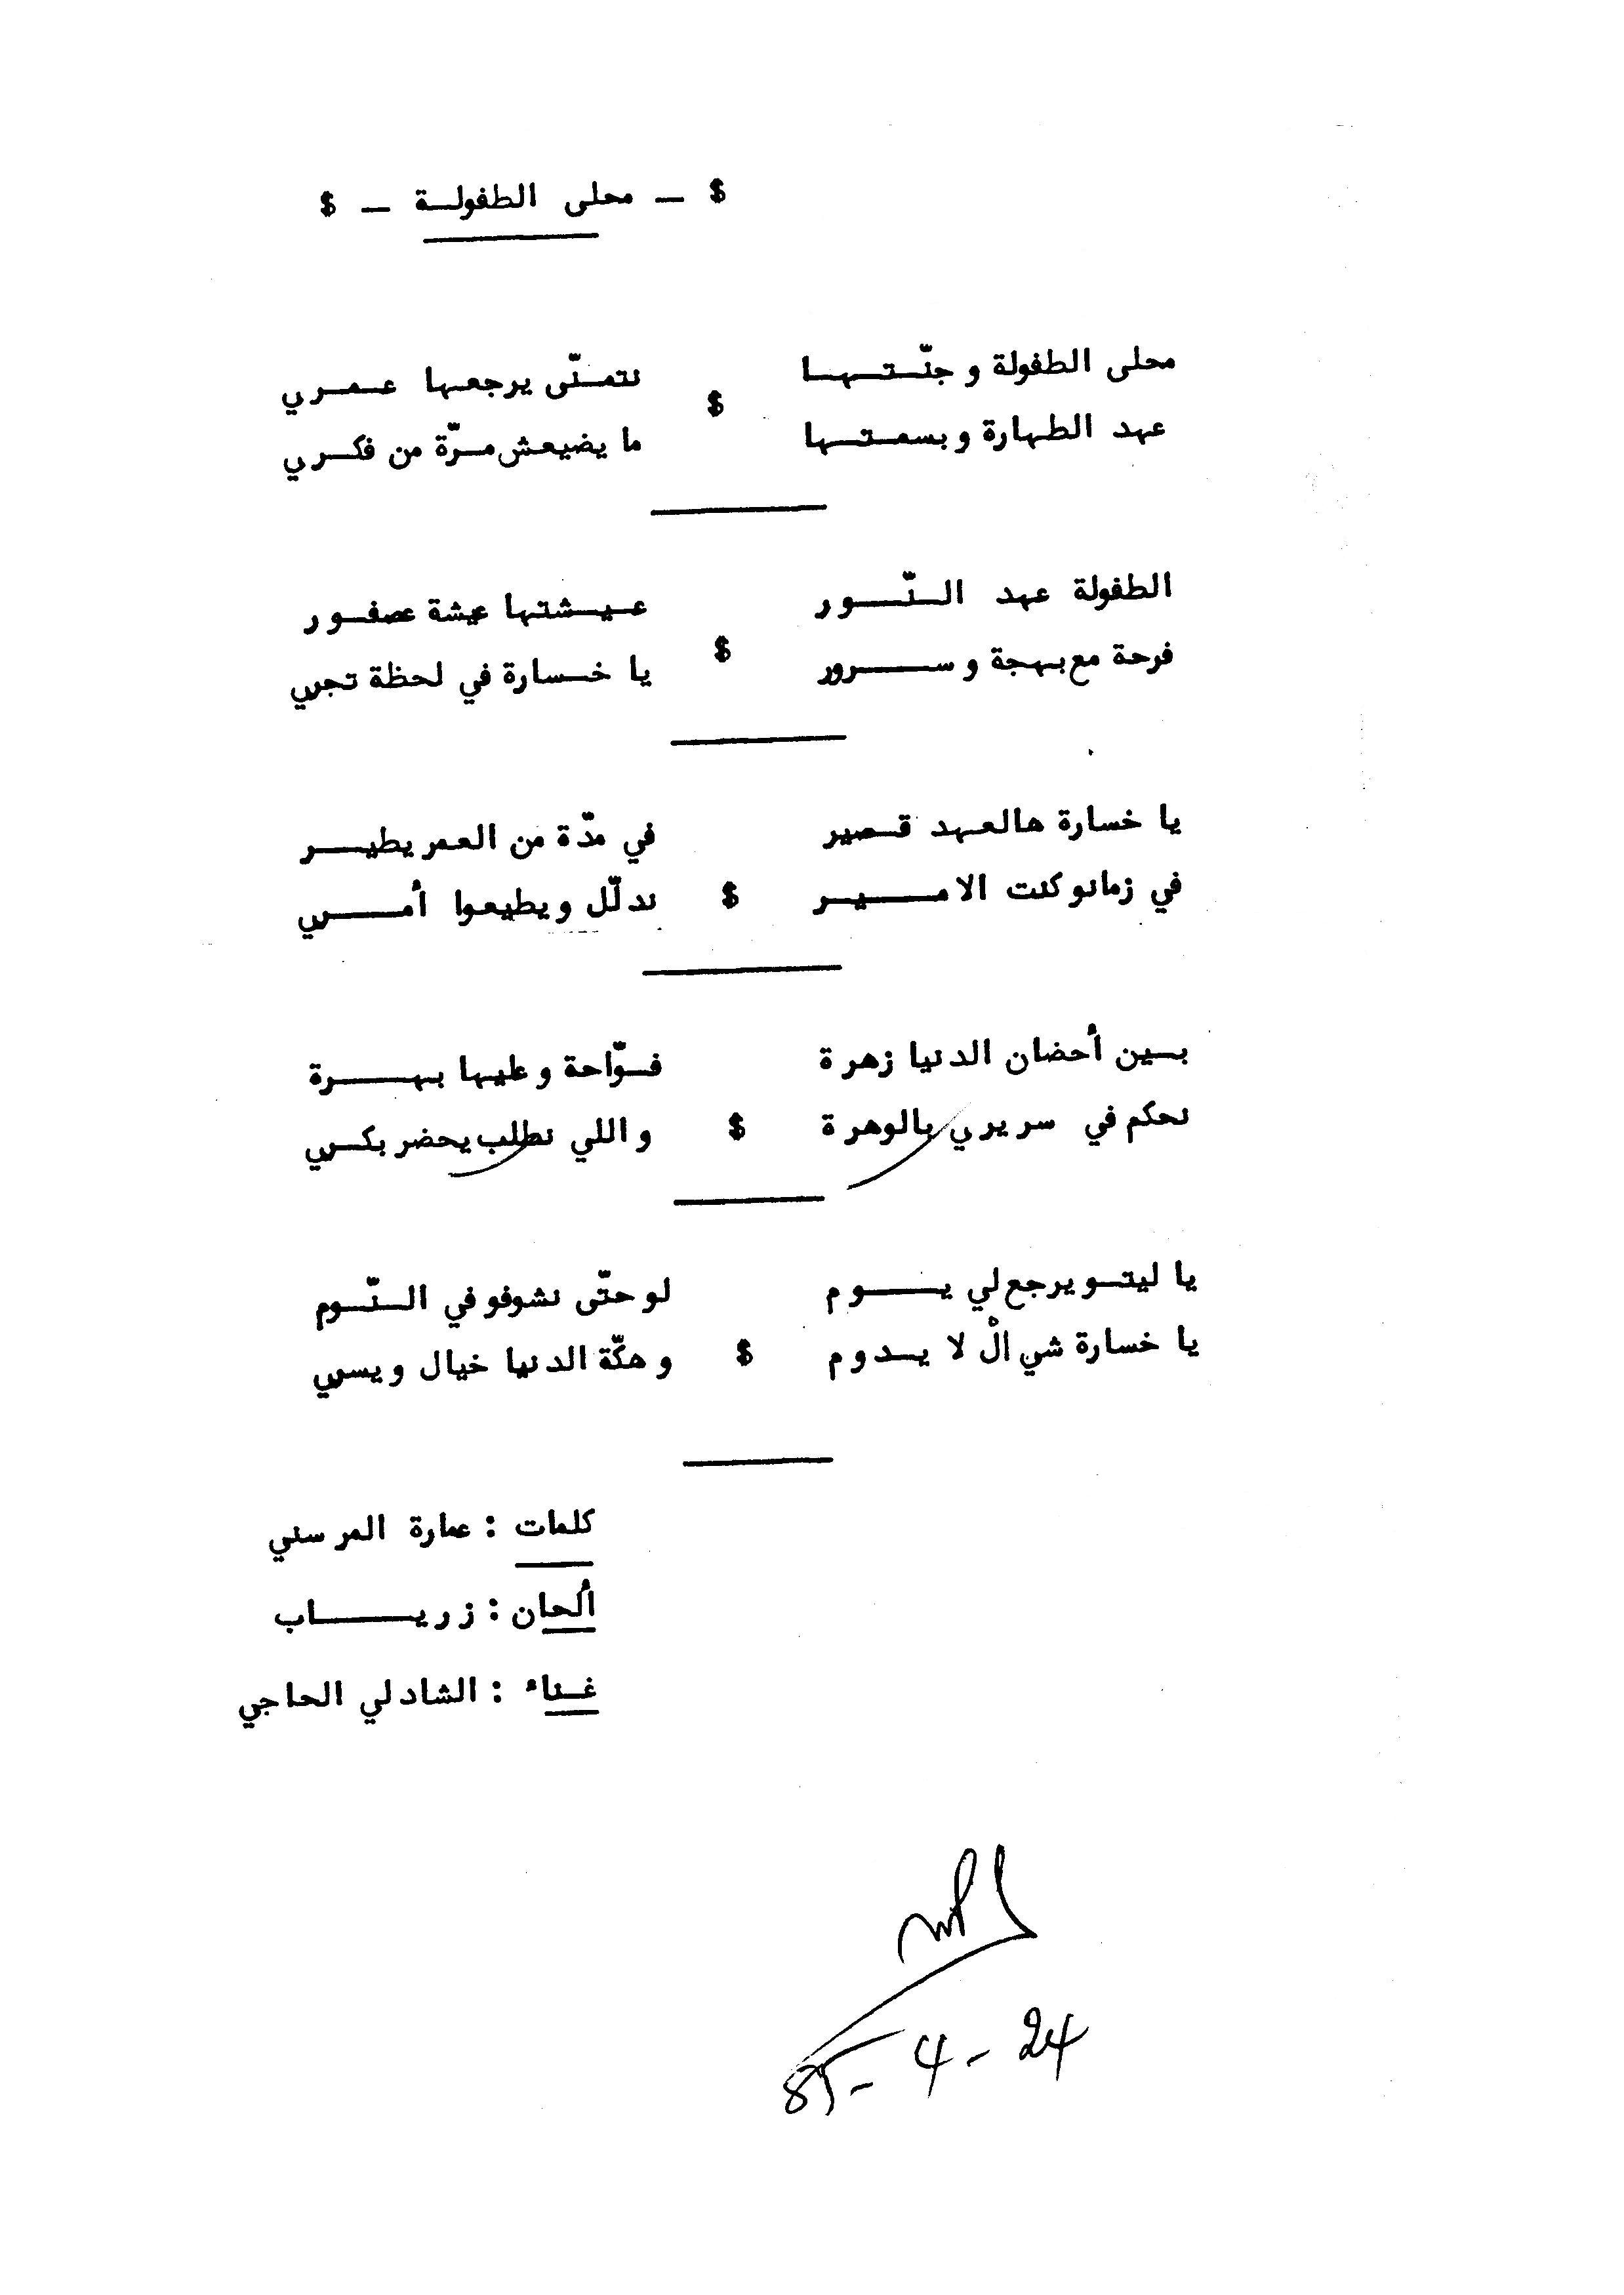 $ — محلى الطفولة — $
محلى الطفولة و جنّتها نتمنّى يرجعها عمري
$
عهد الطهارة و بسمتها ما يضيعش مرّة من فكري
الطفولة عهد النّور عيشتها عيشة عصفور
فرحة مع بهجة و سرور $ يا خسارة في لحظة تجري
يا خسارة هالعهد قصير في مدّة من العمر يطير
في زمانو كنت الامير $ ندلّل و يطيعوا أمري
بين أحضان الدنيا زهرة فوّاحة و عليها بهرة
نحكم في سريري بالوهرة $ و اللي نطلب يحضر بكري
يا ليتو يرجع لي يوم لو حتّى نشوفو في النّوم
يا خسارة شي الْ لا يدوم $ و هكّة الدنيا خيال و يسري
كلمات : عمارة المرسني
ألحان : زرياب
غناء : الشادلي الحاجي
24 - 4 - 85